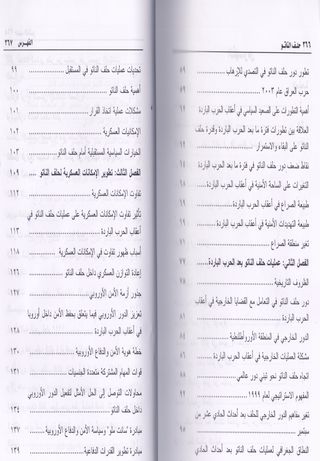 ٢٦٦ حلف الناتو
تطور دور حلف الناتو في التصدي للإرهاب ٥٩
حرب العراق عام ٢٠٠٣
أهمية التطورات على الصعيد السياسي في أعقاب الحرب الباردة
العلاقة بين تطورات فترة ما بعد الحرب الباردة وقدرة حلف
الناتو على البقاء والاستمرار
نقاط ضعف دور حلف الناتو في فترة ما بعد الحرب الباردة
التغيرات على الساحة الأمنية في أعقاب الحرب الباردة
طبيعة الصراع في أعقاب الحرب الباردة
طبيعة التهديدات الأمنية في أعقاب الحرب الباردة
تغير منطقة الصراع
الفصل الثاني: عمليات حلف الناتو بعد الحرب الباردة ٧٧
الظروف التاريخية
دور حلف الناتو في التعامل مع القضايا الخارجية في أعقاب
الحرب الباردة
الدور الخارجي في المنطقة الأوروأطلنطية
مشكلة العمليات الخارجية في أعقاب الحرب الباردة
اتجاه حلف الناتو نحو تبني دور عالمي
المفهوم الاستراتيجي لعام ١٩٩٩
تغير مفاهيم الدور الخارجي للحلف بعد أحداث الحادي عشر من
سبتمبر
النطاق الجغرافي لعمليات حلف الناتو بعد أحداث الحادي
الفهرس ٢٦٧
تحديات عمليات حلف الناتو في المستقبل ٩٩
أهمية حلف الناتو ١٠٠
مشكلات عملية اتخاذ القرار ١٠١
الإمكانيات العسكرية ١٠٢
الخيارات السياسية المستقبلية أمام حلف الناتو ١٠٣
الفصل الثالث: تطوير الإمكانات العسكرية لحلف الناتو ١٠٩
تفاوت الإمكانات العسكرية ١١٢
تأثير تفاوت الإمكانات العسكرية على عمليات حلف الناتو في
أعقاب الحرب الباردة ١١٣
أسباب ظهور تفاوت في الإمكانات العسكرية ١١٦
إعادة التوازن العسكري داخل حلف الناتو
جذور أزمة الأمن الأوروبي
تعزيز الدور الأوروبي فيما يتعلق بحفظ الأمن داخل أوروبا
في أعقاب الحرب الباردة ١٢٨
خطة هوية الأمن والدفاع الأوروبية ١٢٩
قوات المهام المشتركة متعددة الجنسيات ١٣٠
محاولات التوصل إلى الحل الأمثل لتفعيل الدور الأوروبي
داخل حلف الناتو
مبادرة "سانت ملو" وسياسة الأمن والدفاع الأوروبية ١٣٧
مبادرة تطوير القدرات الدفاعية ١٤٩